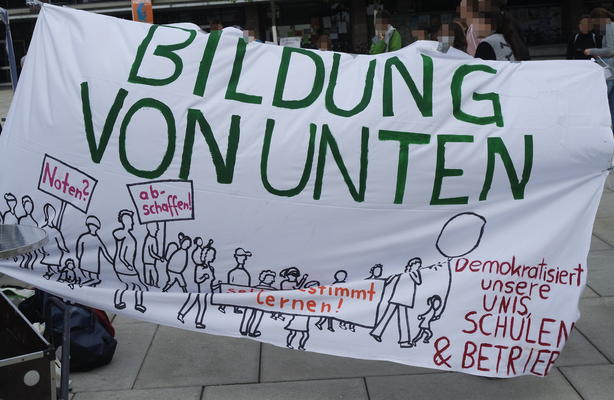 BILDUNG
VON UNTEN
Noten?
ab-
schaffen!
stimmt
lernen!
Demokratisiert
unsere
UNIS,
SCHULEN
& BETRIEB